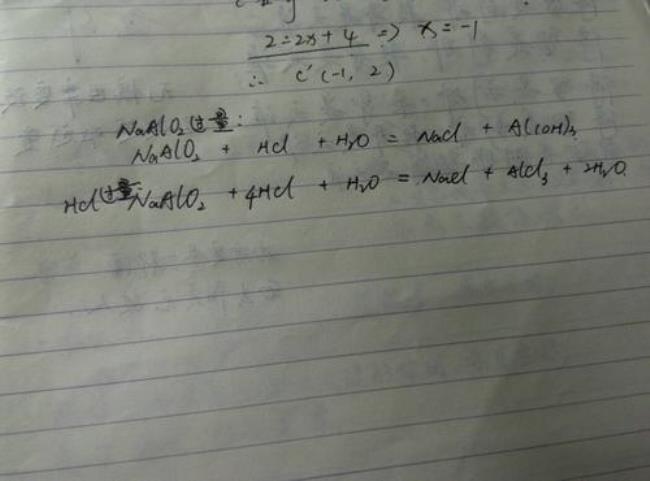 2=2x+4 => x=-1
∴ C'(-1, 2)
NaAlO2过量:
NaAlO2 + HCl + H2O = NaCl + Al(OH)3
HCl过量: NaAlO2 + 4HCl + H2O = NaCl + AlCl3 + 2H2O